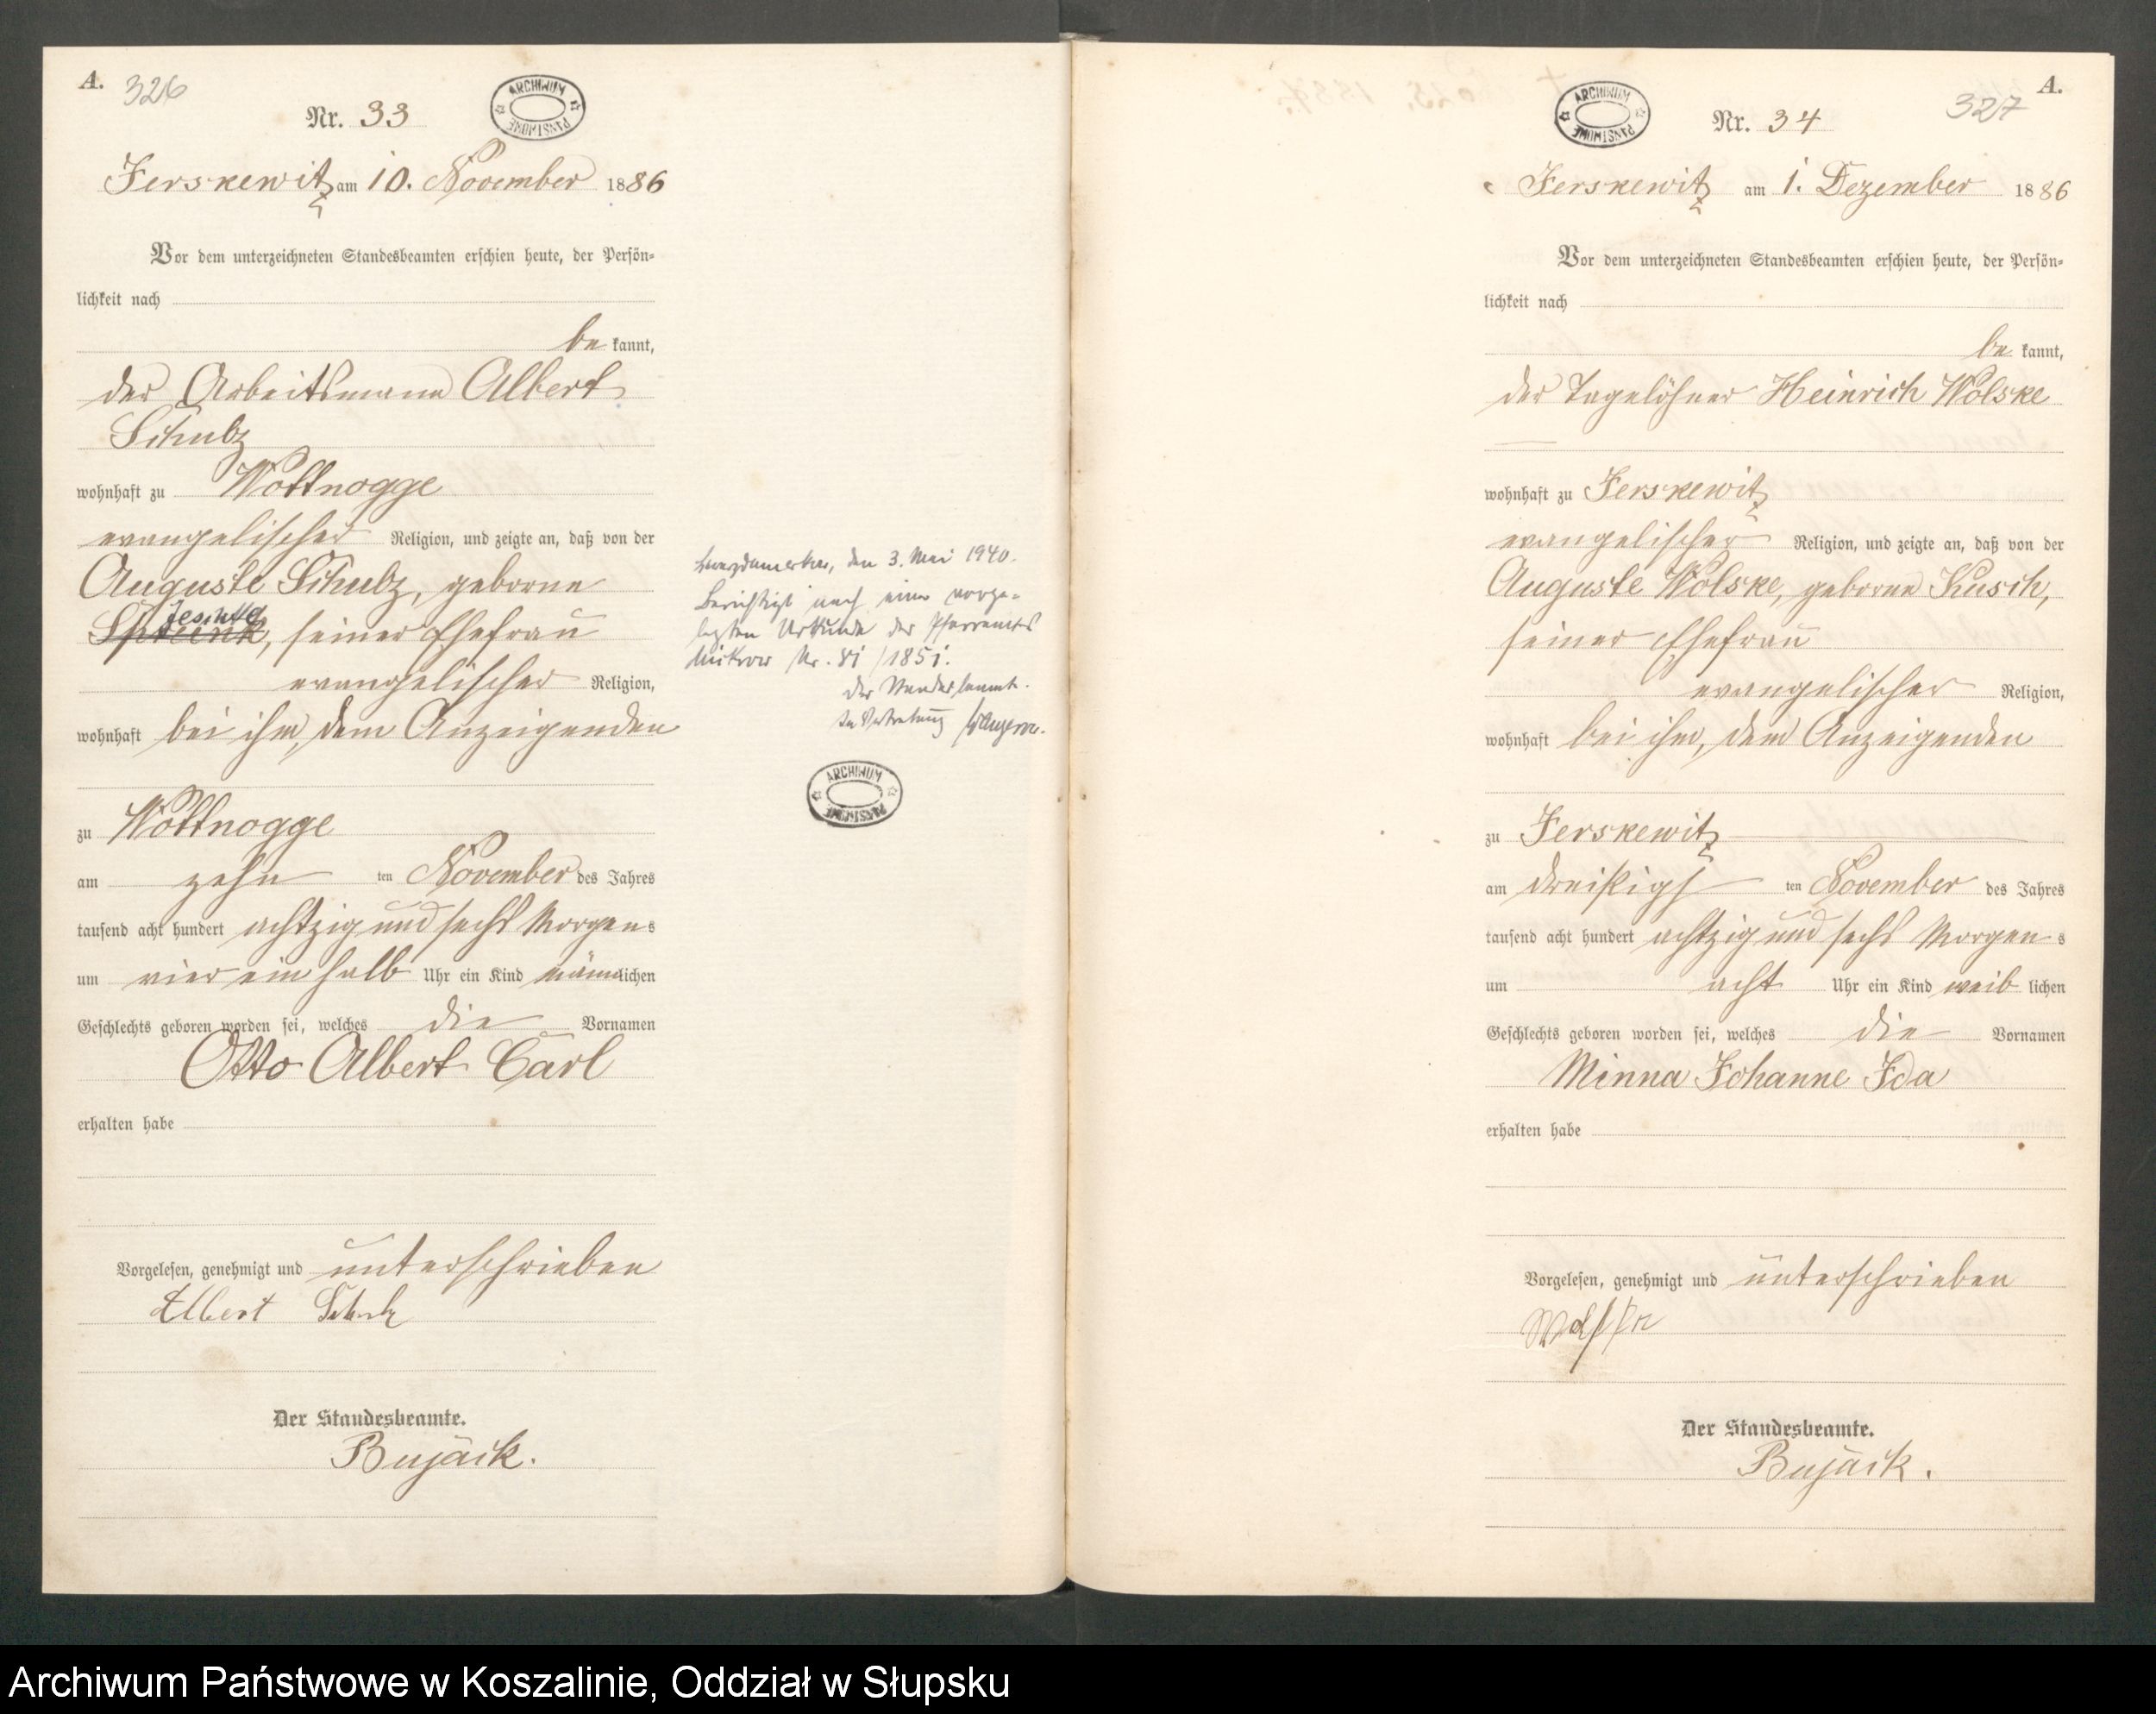 A.
326
Nr. 33
ARCHIWUM PAŃSTWOWE
Jerskewitz am 10. November 1886
Vor dem unterzeichneten Standesbeamten erschien heute, der Persön-
lichkeit nach
be kannt,
der Arbeitsmann Albert
Schulz
wohnhaft zu Wottnogge
evangelischer Religion, und zeigte an, daß von der
Auguste Schulz, geborne
Jeschke
seiner Ehefrau
evangelischer Religion,
wohnhaft bei ihm, dem Anzeigenden
zu Wottnogge
am zehn ten November des Jahres
tausend acht hundert achtzig und sechs Morgens
um vier ein halb Uhr ein Kind männlichen
Geschlechts geboren worden sei, welches die Vornamen
Otto Albert Carl
erhalten habe
Vorgelesen, genehmigt und unterschrieben
Albert Schulz
Der Standesbeamte.
Bujack.
den 3. Mai 1940.
Berichtigt nach einer vorge-
legten Urkunde des Pfarramts
Mikrow Nr. 81/1851.
Der Standesbeamte.
In Vertretung
ARCHIWUM PAŃSTWOWE
A.
327
Nr. 34
ARCHIWUM PAŃSTWOWE
Jerskewitz am 1. Dezember 1886
Vor dem unterzeichneten Standesbeamten erschien heute, der Persön-
lichkeit nach
be kannt,
der Tagelöhner Heinrich Wolske
wohnhaft zu Jerskewitz
evangelischer Religion, und zeigte an, daß von der
Auguste Wolske, geborne Kusch,
seiner Ehefrau
evangelischer Religion,
wohnhaft bei ihm, dem Anzeigenden
zu Jerskewitz
am dreißigs ten November des Jahres
tausend acht hundert achtzig und sechs Morgens
um acht Uhr ein Kind weib lichen
Geschlechts geboren worden sei, welches die Vornamen
Minna Johanne Ida
erhalten habe
Vorgelesen, genehmigt und unterschrieben
Wolske
Der Standesbeamte.
Bujack.
Archiwum Państwowe w Koszalinie, Oddział w Słupsku